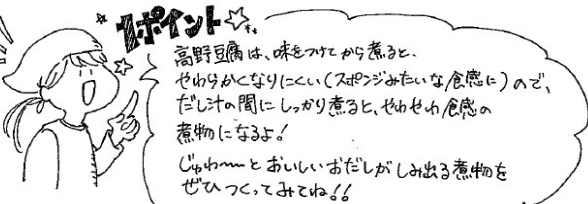 1ポイント
高野豆腐は、味をつけてから煮ると、
やわらかくなりにくい(スポンジみたいな食感に)ので、
だし汁の間にしっかり煮ると、やわやわ食感の
煮物になるよ!
じゅわ〜〜とおいしいおだしがしみ出る煮物を
ぜひつくってみてね!!